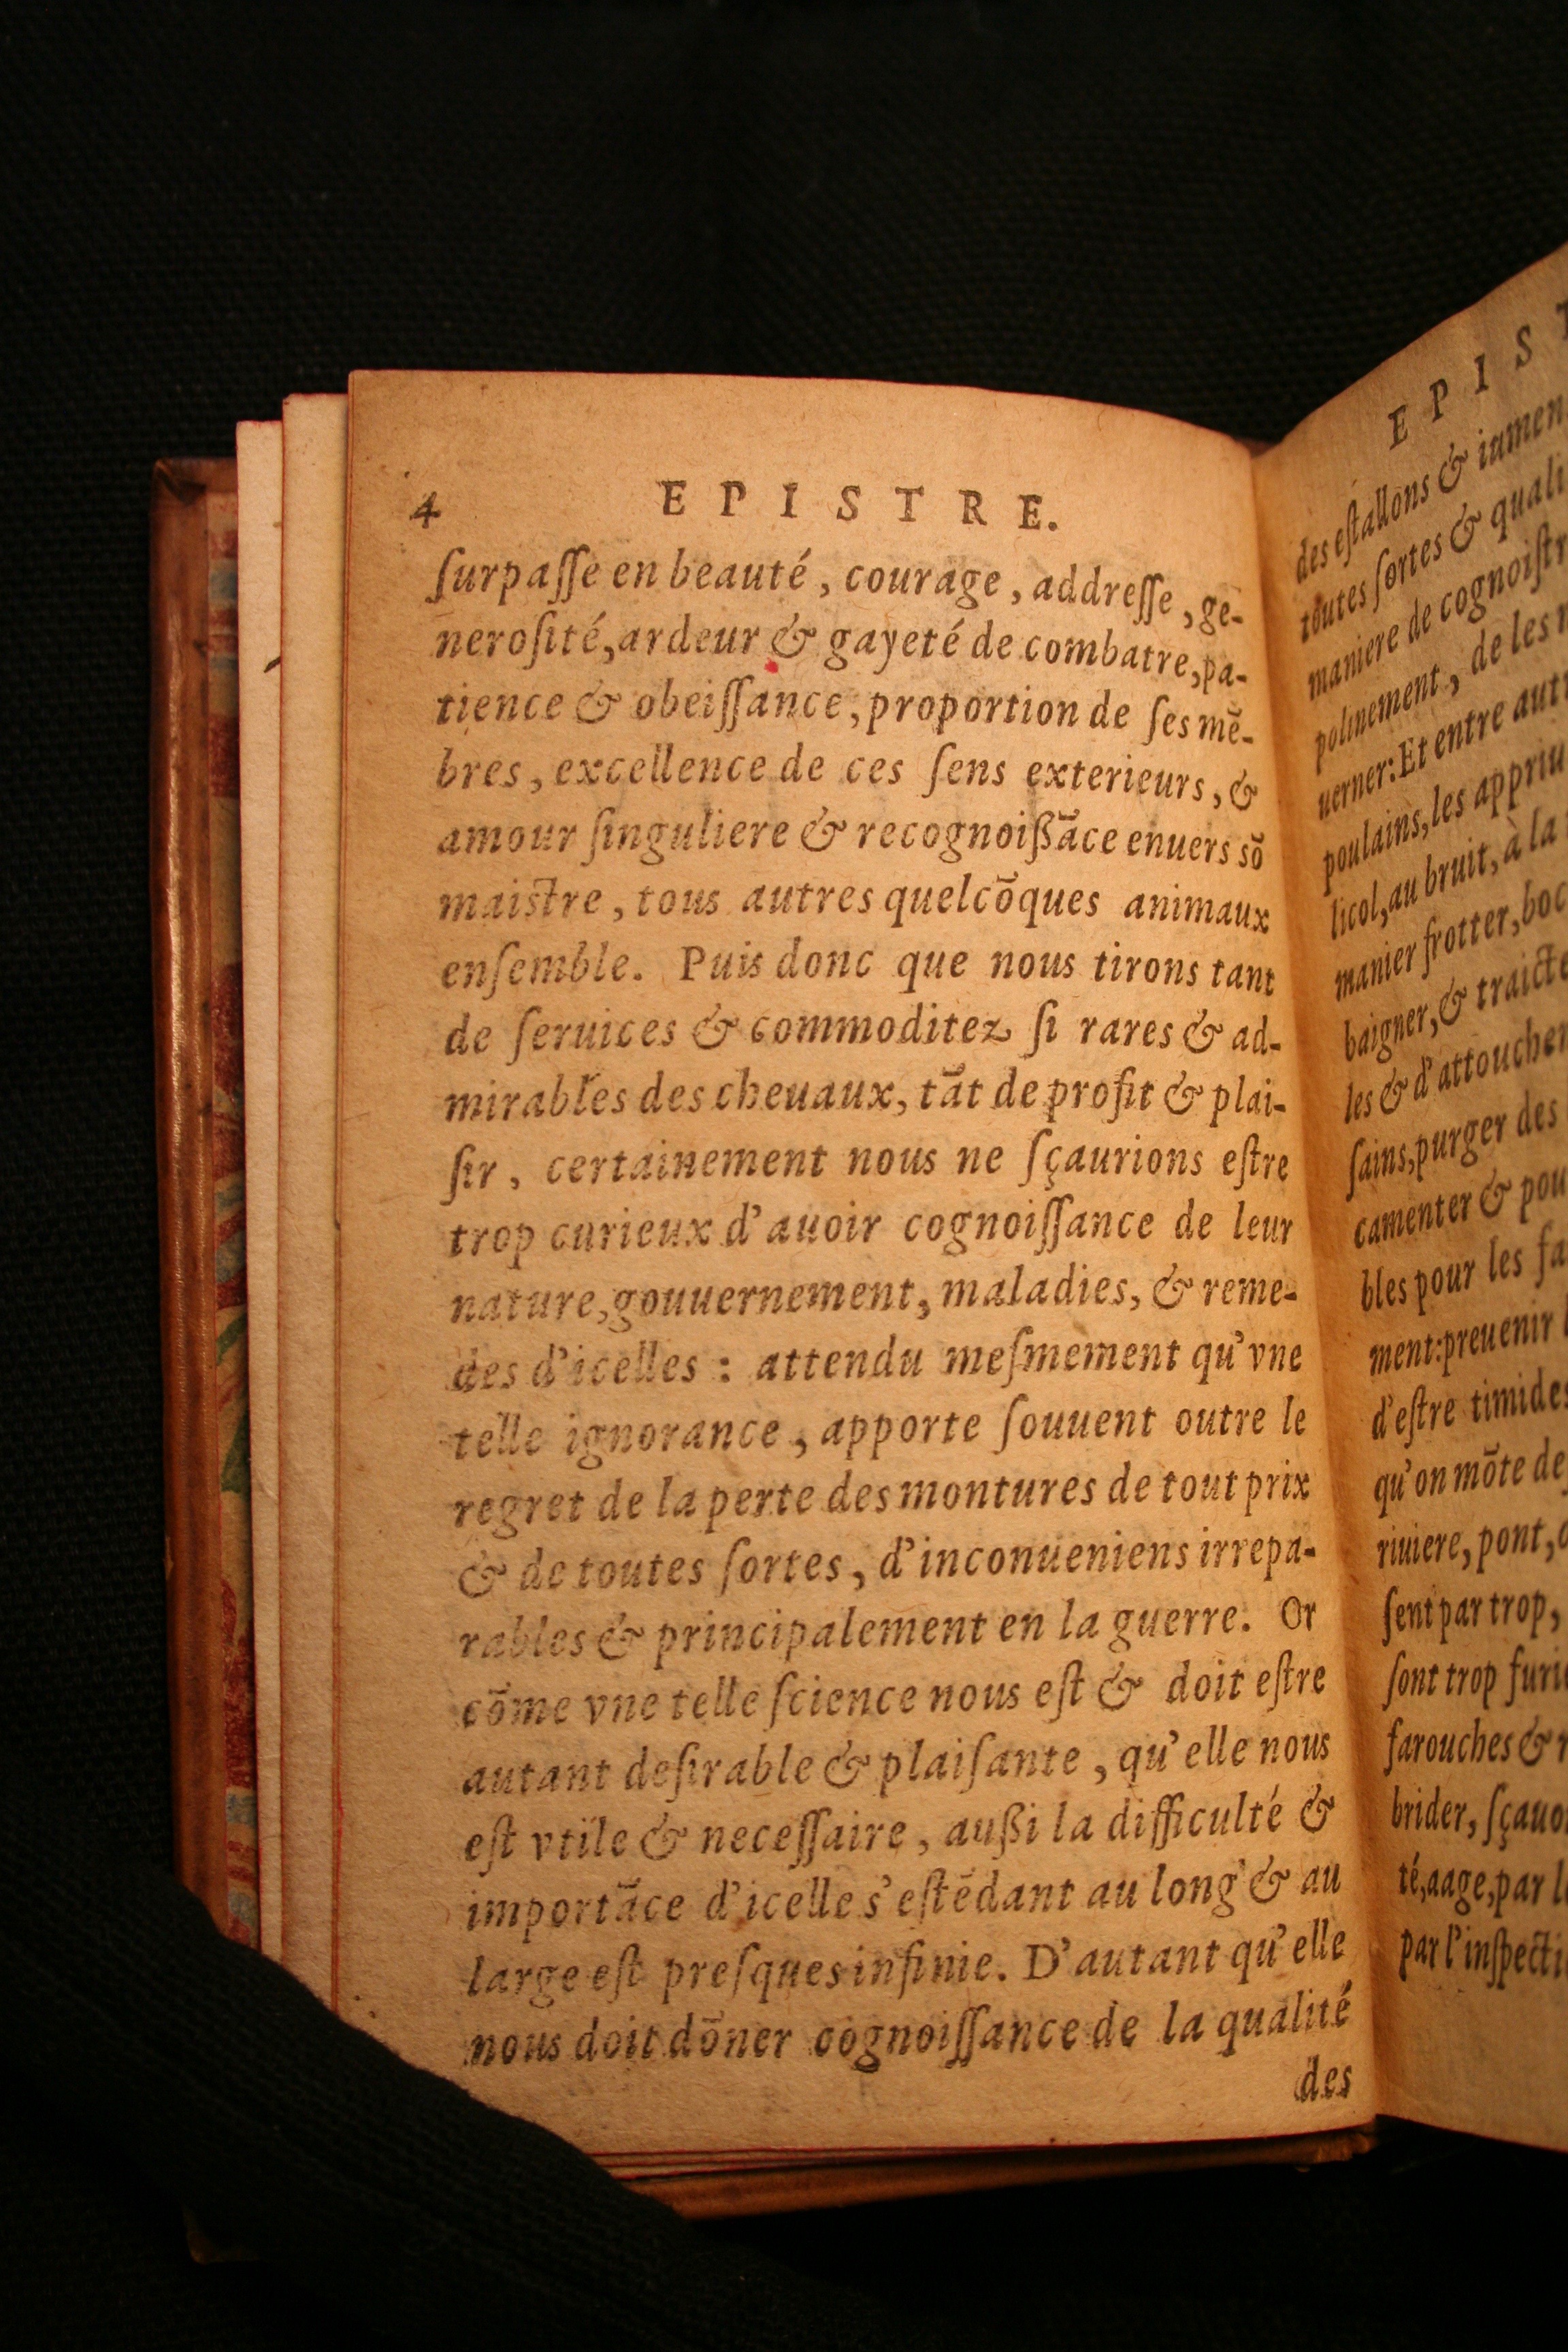 4 EPISTRE.
ſurpaſſe en beauté, courage, addreſſe, ge-
neroſité, ardeur & gayeté de combatre, pa-
tience & obeiſſance, proportion de ſes mē-
bres, excellence de ces ſens exterieurs, &
amour ſinguliere & recognoißāce enuers sō
maistre, tous autres quelcōques animaux
enſemble. Puis donc que nous tirons tant
de ſeruices & commoditez ſi rares & ad-
mirables des cheuaux, tāt de profit & plai-
ſir, certainement nous ne ſçaurions eſtre
trop curieux d'auoir cognoiſſance de leur
nature, gouuernement, maladies, & reme-
des d'icelles : attendu meſmement qu'vne
telle ignorance, apporte ſouuent outre le
regret de la perte des montures de tout prix
& de toutes ſortes, d'inconueniens irrepa-
rables & principalement en la guerre. Or
cōme vne telle ſcience nous eſt & doit eſtre
autant deſirable & plaiſante, qu'elle nous
eſt vtile & neceſſaire, außi la difficulté &
importāce d'icelle s'eſtēdant au long & au
large eſt preſques infinie. D'autant qu'elle
nous doit dōner cognoiſſance de la qualité
des
EPIST
des eſtallons & iumen
toutes ſortes & quali
maniere de cognoiſtr
polinement, de les
uerner: Et entre autr
poulains, les appriu
licol, au bruit, à la
manier frotter, boc
baigner, & traicte
les & d'attoucher
ſains, purger des
camenter & pou
bles pour les fa
ment: preuenir
d'eſtre timides
qu'on mōte de
riuiere, pont,
ſent par trop,
ſont trop furi
farouches &
brider, ſçauo
té, aage, par l
par l'inſpecti